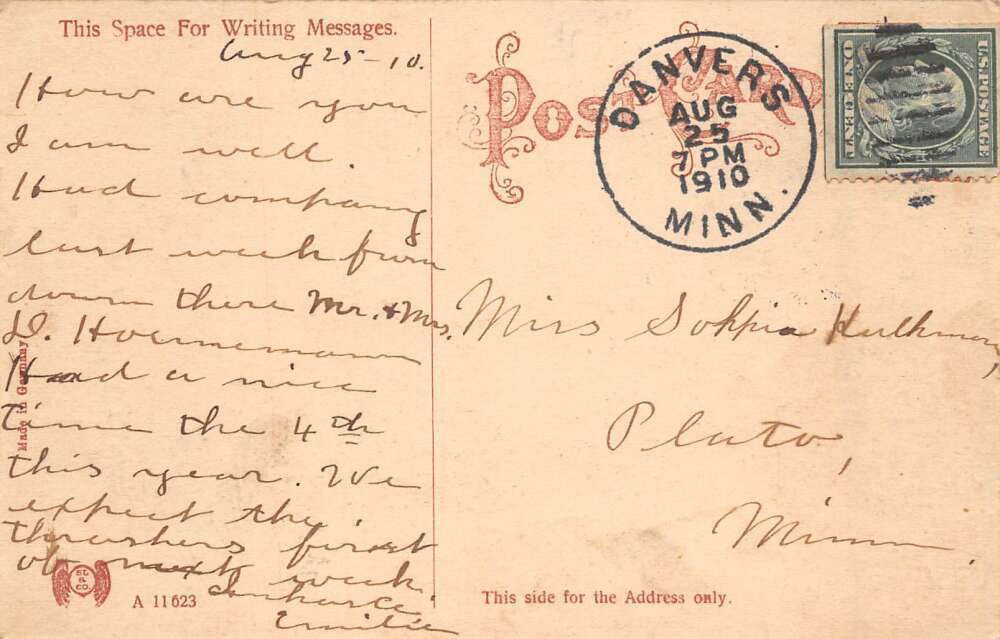 This Space For Writing Messages.
Aug 25-10.
How are you
I am well.
Had company
last week from
down there Mr. & Mrs.
Had a nice
time the 4th
this year. We
expect the
thrashers first
of next week.
In haste
Emilie
Made in Germany
SL & CO.
A 11623
POST CARD
DANVERS
AUG
25
7 PM
1910
MINN.
U.S. POSTAGE
ONE CENT
Miss Sophia
Plato,
Minn
This side for the Address only.